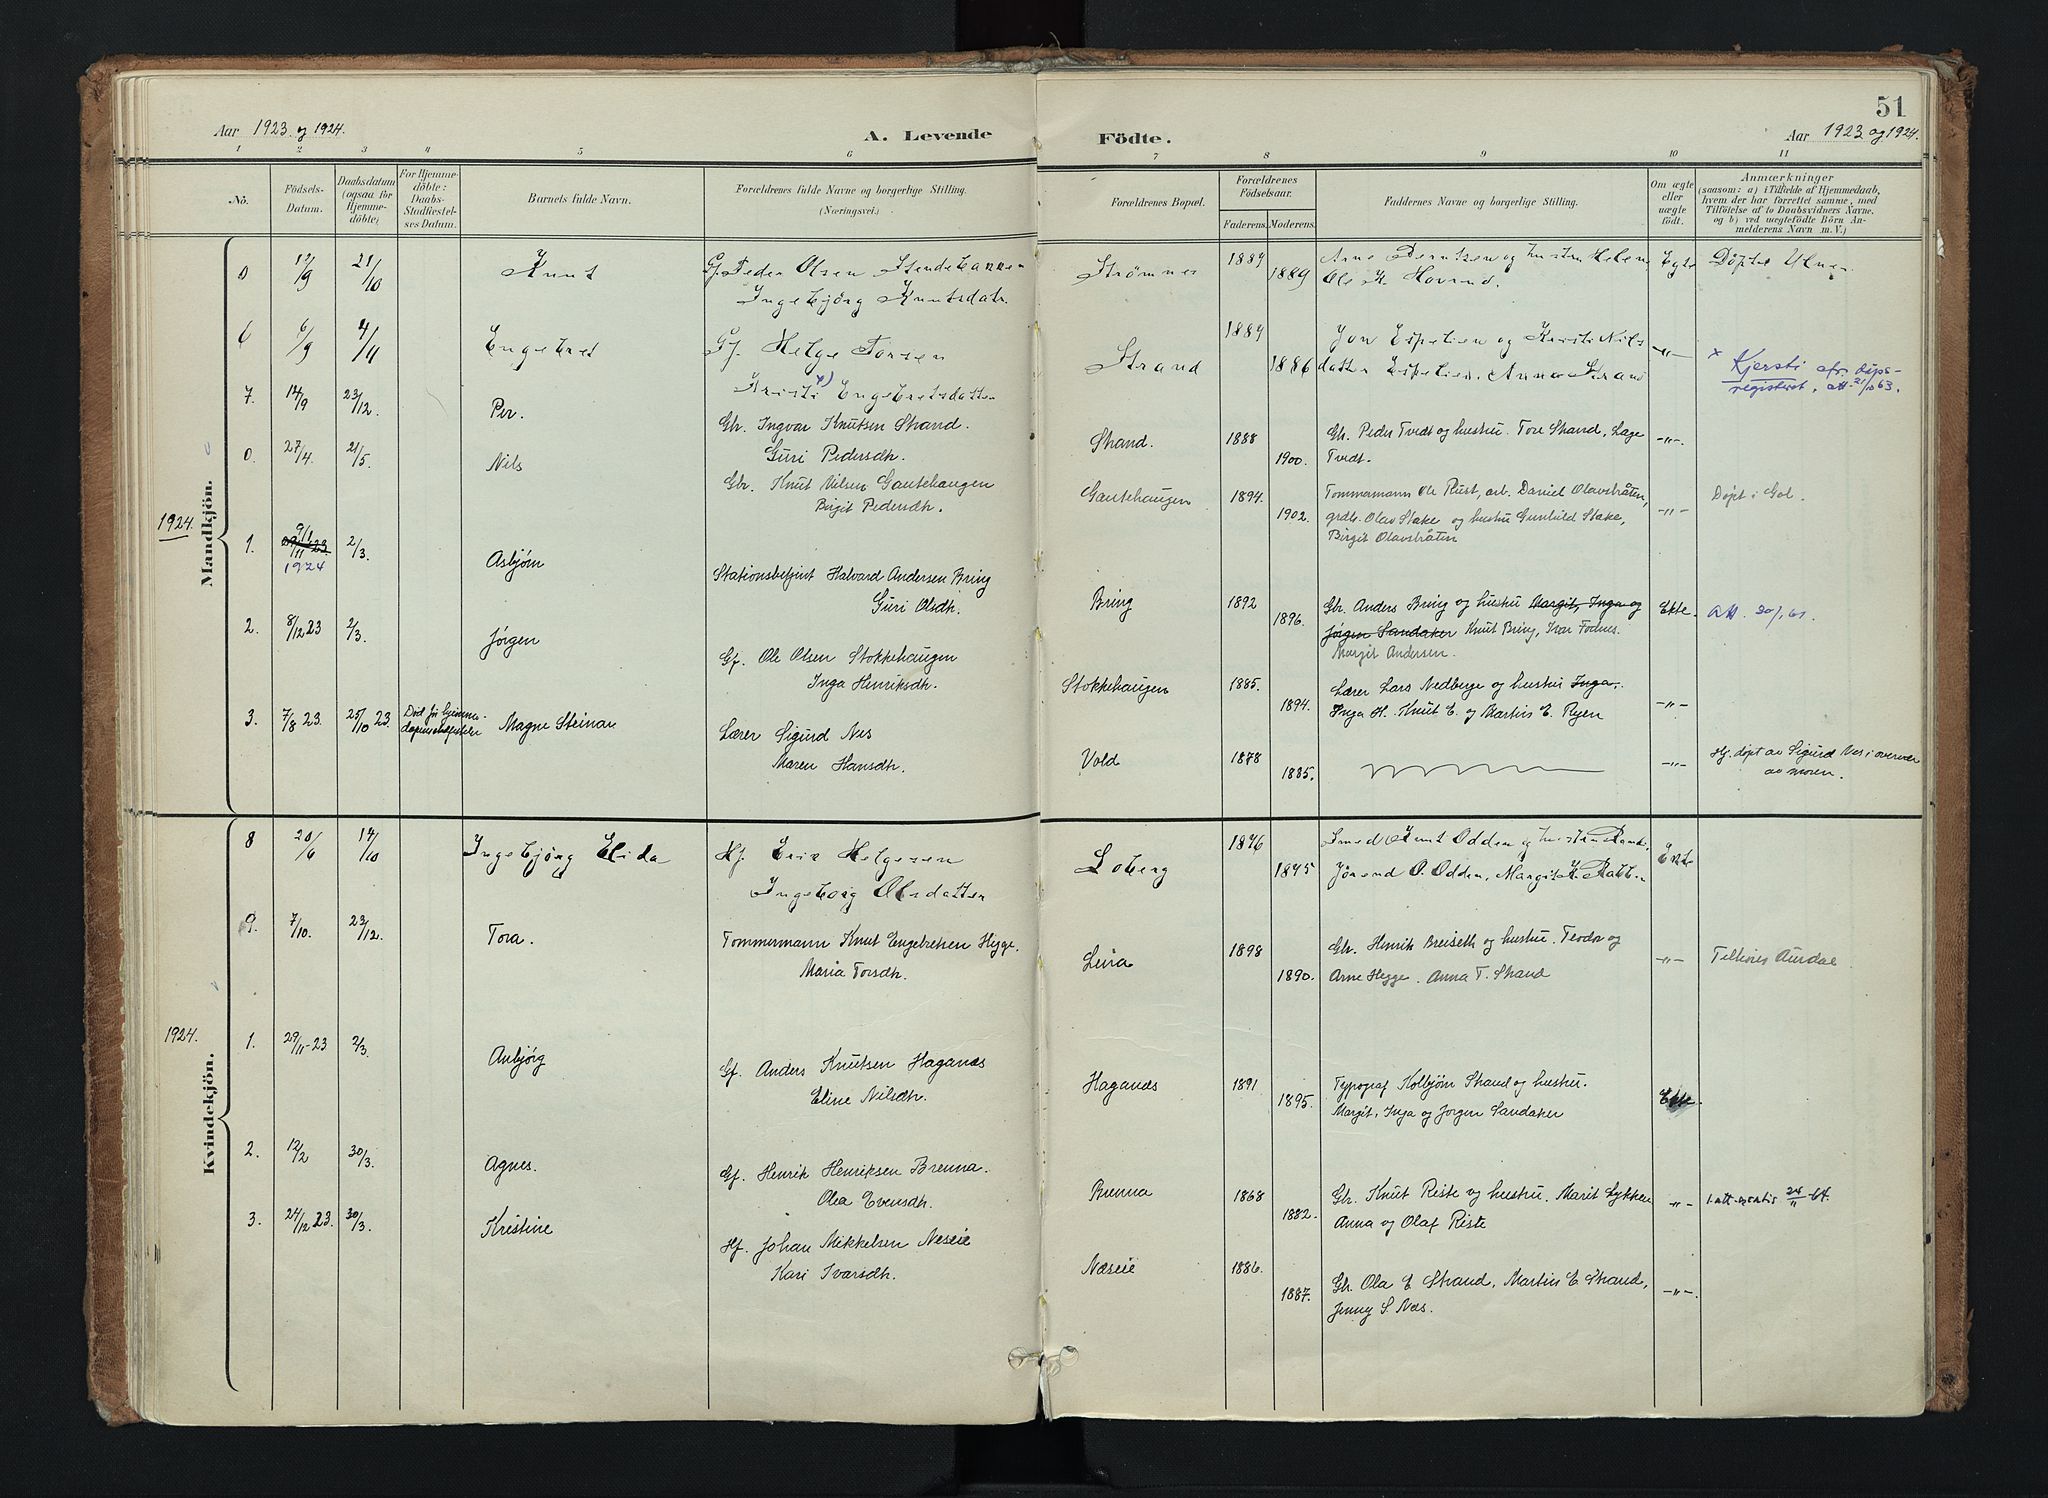 51
Aar 1923 og 1924. A. Levende Födte. Aar 1923 og 1924.
1 2 3 4 5 6 7 8 9 10 11
No.
Födsels-
Datum.
Daabsdatum
(ogsaa for
Hjemme-
döbte)
For Hjemme-
döbte:
Daabs-
Stadfæstel-
ses Datum.
Barnets fulde Navn.
Forældrenes fulde Navne og borgerlige Stilling.
(Næringsvei.)
Forældrenes Bopæl.
Forældrenes
Födselsaar.
Faderens. Moderens.
Faddernes Navne og borgerlige Stilling.
Om ægte
eller
uægte
født.
Anmærkninger
(saasom: a) i Tilfælde af Hjemmedaab,
hvem der har forrettet samme, med
Tilföielse af to Daabsvidners Navne.
og b) ved uægtefödte Börn An-
melderens Navn m. V.)
Mandkjön.
0 12/9 21/10 Knut Gf. Peder Olsen
Ingebjörg Knutsdatr.
Strømnes 1889 1889 Arne og hustru Helene
Ole K. Hovrud. Egte Döpt i Ulnes.
6 6/9 4/11 Engebret Gf. Helge Torsen
Kristi x) Engebretsdatter
Strand 1889 1886 Jon Espelien og Kersti Nils
datter Espelien. Anna Strand -"-
x Kjersti efr. dåps-
registeret, att. 21/10 63.
7. 14/9 23/12. Per. Gbr. Ingvar Knutsen Strand.
Guri Pedersdtr.
Strand. 1888 1900. Gbr. Peder Tvedt og hustru. Tore Strand, Lage
Tvedt. -"-
0. 27/4. 21/5. Nils Gbr. Knut Nilsen Gautehaugen
Birgit Pedersdtr.
Gautehaugen 1894. 1902. Tømmermann Ole Rust, arb. Daniel Olavsbråten,
grdbr. Olav Stake og hustru Gunhild Stake,
Birgit Olavsbråten -"- Døpt i Gol.
1924.
1. 9/1 29/11 23. 1924 2/3. Asbjørn Stationsbetjent Halvard Andersen Bring
Guri Olsdtr.
Bring 1892 1896. Gbr. Anders Bring og hustru Margit, Inga og
Jørgen Sandaker Knut Bring, Ivar Fodnes.
Margit Andersen. Ekte. Att. 30/1 61.
2. 8/12 23 2/3. Jørgen Gf. Ole Olsen Stokkehaugen
Inga Henriksdtr.
Stokkehaugen 1885. 1894. Lærer Lars Nedberge og hustru Inga,
Inga H. Knut E. og Martin E. Ryen -"-
3. 7/8 23. 25/10 23. Død før hjemme-
Magne Steinar Lærer Sigurd Nes
Maren Hansdtr.
Vold 1878 1885. -"- Hj. døpt av Sigurd Nes i overvær
av moren.
Kvindekjön.
8 20/6 14/10 Ingebjörg Elida Hf. Erik Helgesen
Ingeborg Olsdatter
Loberg 1876 1895 Smed Knut Odden og hustru
Jörend O. Odden, Margit K. Ekte
9. 7/10. 23/12. Tora. Tømmermann Knut Engebretsen Hegge.
Maria Torsdtr.
Leira 1898 1890. Gbr. Henrik Breiseth og hustru. Teodor og
Arne Hegge. Anna T. Strand -"- Tilhører Aurdal
1924.
1. 29/11-23 2/3. Asbjørg Gf. Anders Knutsen Haganæs
Eline Nilsdtr.
Haganæs 1891 1895. Typograf Kolbjørn Strand og hustru.
Margit, Inga og Jørgen Sandaker Ekte.
2. 12/2 30/3. Agnes. Gf. Henrik Henriksen Brenna.
Olea Evensdtr.
Brenna 1868 1882. Gbr. Knut Riste og hustru. Marit Lykken
Anna og Olaf Riste -"- 1 att. gratis 24/11-64.
3. 24/12 23. 30/3. Kristine Hf. Johan Mikkelsen Neseie
Kari Ivarsdtr.
Næseie 1886. 1887. Gbr. Ola E Strand, Martin E. Strand,
Jenny S. Næs. -"-